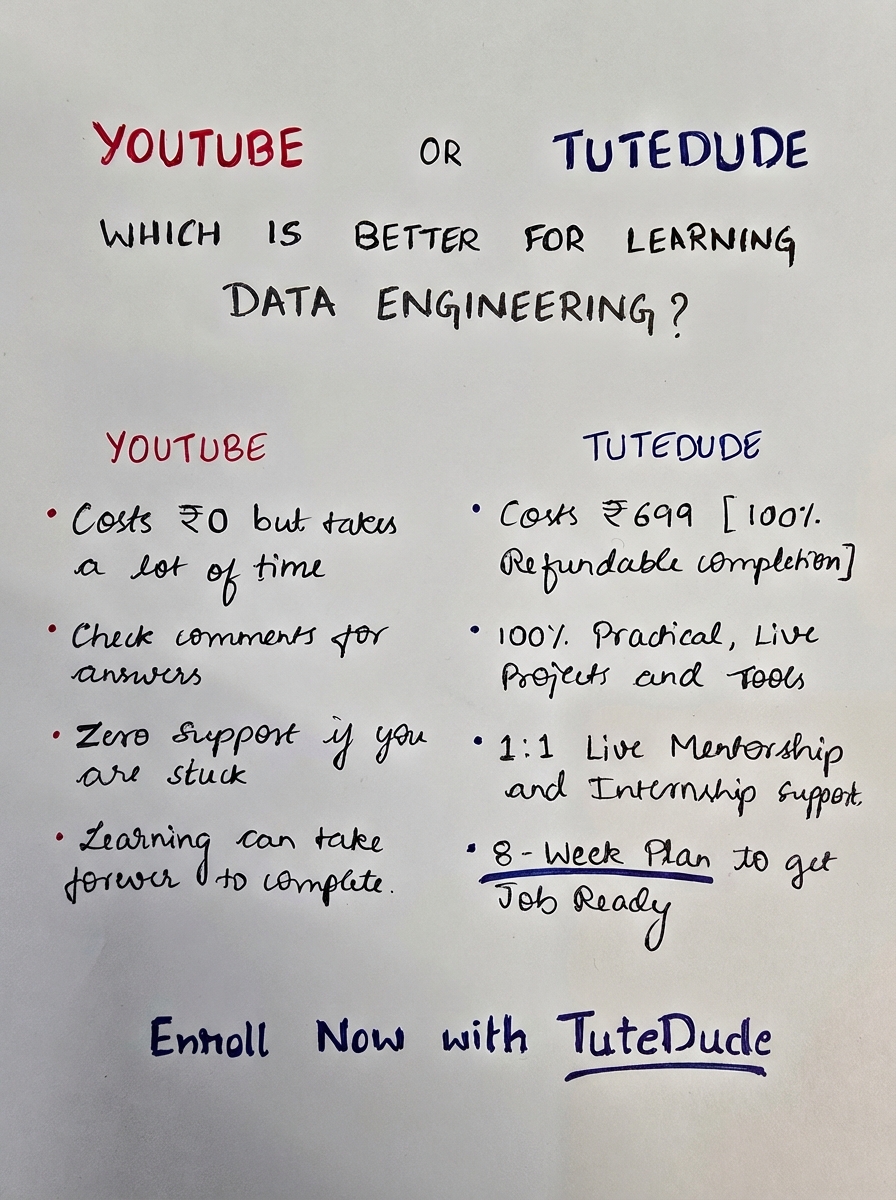 YOUTUBE OR TUTEDUDE
WHICH IS BETTER FOR LEARNING
DATA ENGINEERING?
YOUTUBE
• Costs ₹0 but takes
a lot of time
• Check comments for
answers
• Zero support if you
are stuck
• Learning can take
forever to complete.
TUTEDUDE
• Costs ₹699 [100%
Refundable completion]
• 100% Practical, Live
Projects and Tools
• 1:1 Live Mentorship
and Internship support.
• 8-Week Plan to get
Job Ready
Enroll Now with TuteDude